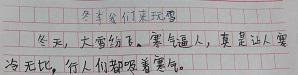 冬季我们来玩雪
冬天，大雪纷飞。寒气逼人，真是让人寒
冷无比，行人们都吸着寒气。